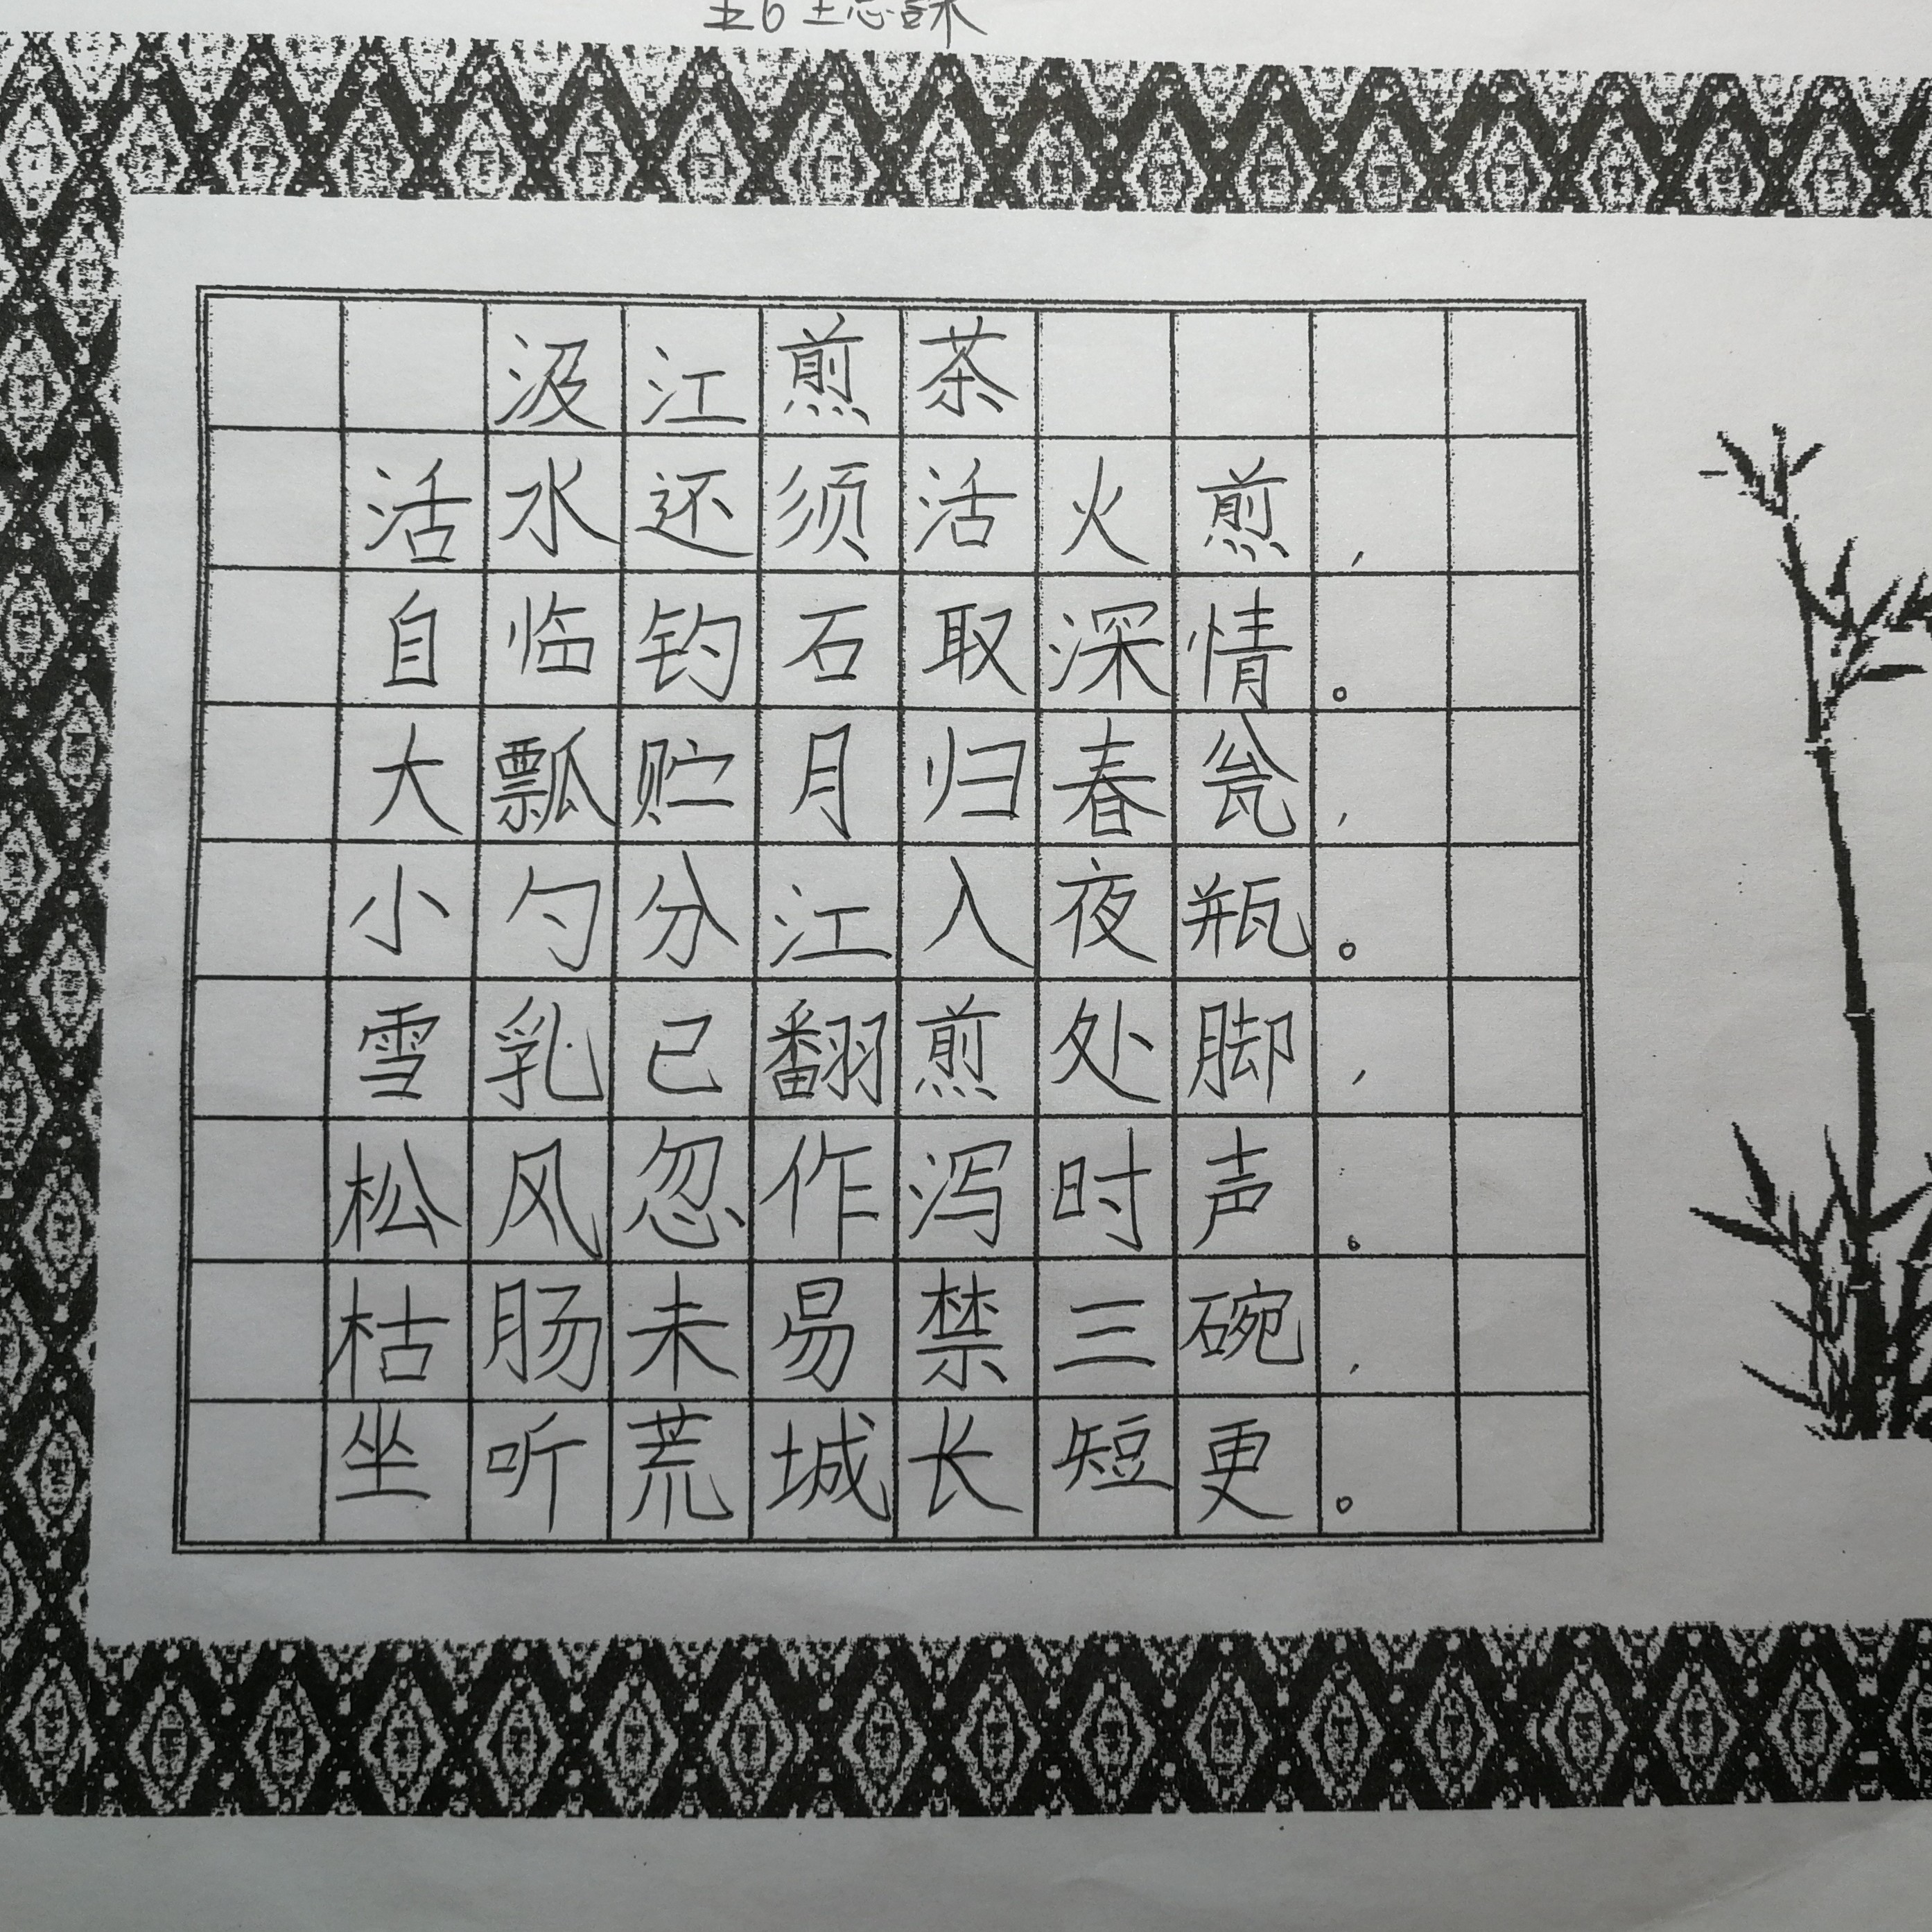 汲江煎茶
活水还须活火煎，
自临钓石取深情。
大瓢贮月归春瓮，
小勺分江入夜瓶。
雪乳已翻煎处脚，
松风忽作泻时声。
枯肠未易禁三碗，
坐听荒城长短更。